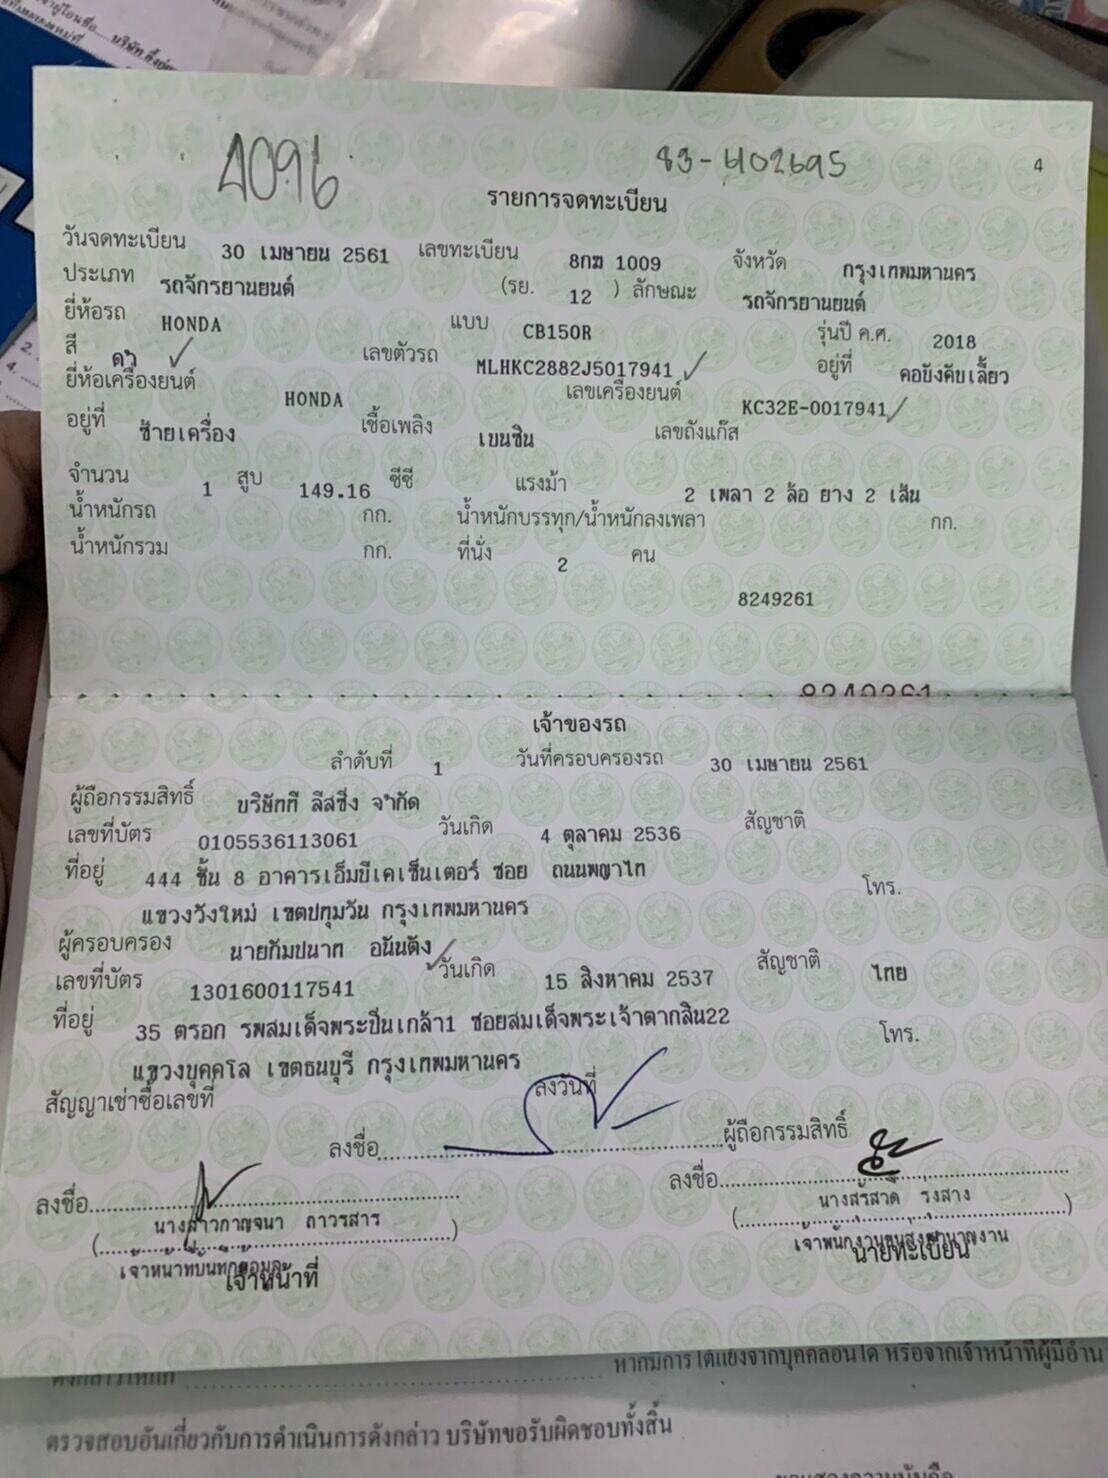 4096
83-402695
4
รายการจดทะเบียน
วันจดทะเบียน 30 เมษายน 2561 เลขทะเบียน 8กฆ 1009 จังหวัด กรุงเทพมหานคร
ประเภท รถจักรยานยนต์ (รย. 12 ) ลักษณะ รถจักรยานยนต์
ยี่ห้อรถ HONDA แบบ CB150R รุ่นปี ค.ศ. 2018
สี ดำ เลขตัวรถ MLHKC2882J5017941 อยู่ที่ คอบังคับเลี้ยว
ยี่ห้อเครื่องยนต์ HONDA เลขเครื่องยนต์ KC32E-0017941
อยู่ที่ ซ้ายเครื่อง เชื้อเพลิง เบนซิน เลขถังแก๊ส
จำนวน 1 สูบ 149.16 ซีซี แรงม้า 2 เพลา 2 ล้อ ยาง 2 เส้น
น้ำหนักรถ กก. น้ำหนักบรรทุก/น้ำหนักลงเพลา กก.
น้ำหนักรวม กก. ที่นั่ง 2 คน
8249261
8249261
เจ้าของรถ
ลำดับที่ 1 วันที่ครอบครองรถ 30 เมษายน 2561
ผู้ถือกรรมสิทธิ์ บริษัทที ลีสซิ่ง จำกัด
เลขที่บัตร 0105536113061 วันเกิด 4 ตุลาคม 2536 สัญชาติ
ที่อยู่ 444 ชั้น 8 อาคารเอ็มบีเคเซ็นเตอร์ ซอย ถนนพญาไท โทร.
แขวงวังใหม่ เขตปทุมวัน กรุงเทพมหานคร
ผู้ครอบครอง นายกัมปนาท อนันตัง
เลขที่บัตร 1301600117541 วันเกิด 15 สิงหาคม 2537 สัญชาติ ไทย
ที่อยู่ 35 ตรอก รพสมเด็จพระปิ่นเกล้า1 ซอยสมเด็จพระเจ้าตากสิน22 โทร.
แขวงบุคคโล เขตธนบุรี กรุงเทพมหานคร
สัญญาเช่าซื้อเลขที่ ลงวันที่
ลงชื่อ ผู้ถือกรรมสิทธิ์
ลงชื่อ ลงชื่อ
นางสาวกาญจนา ถาวรสาร
เจ้าหน้าที่บันทึกข้อมูล
เจ้าหน้าที่
นางสรัสวดี
เจ้าพนักงานขนส่งชำนาญงาน
นายทะเบียน
หากมีการโต้แย้งจากบุคคลอื่นใด หรือจากเจ้าหน้าที่ผู้มีอำนา
ตรวจสอบอันเกี่ยวกับการดำเนินการดังกล่าว บริษัทขอรับผิดชอบทั้งสิ้น